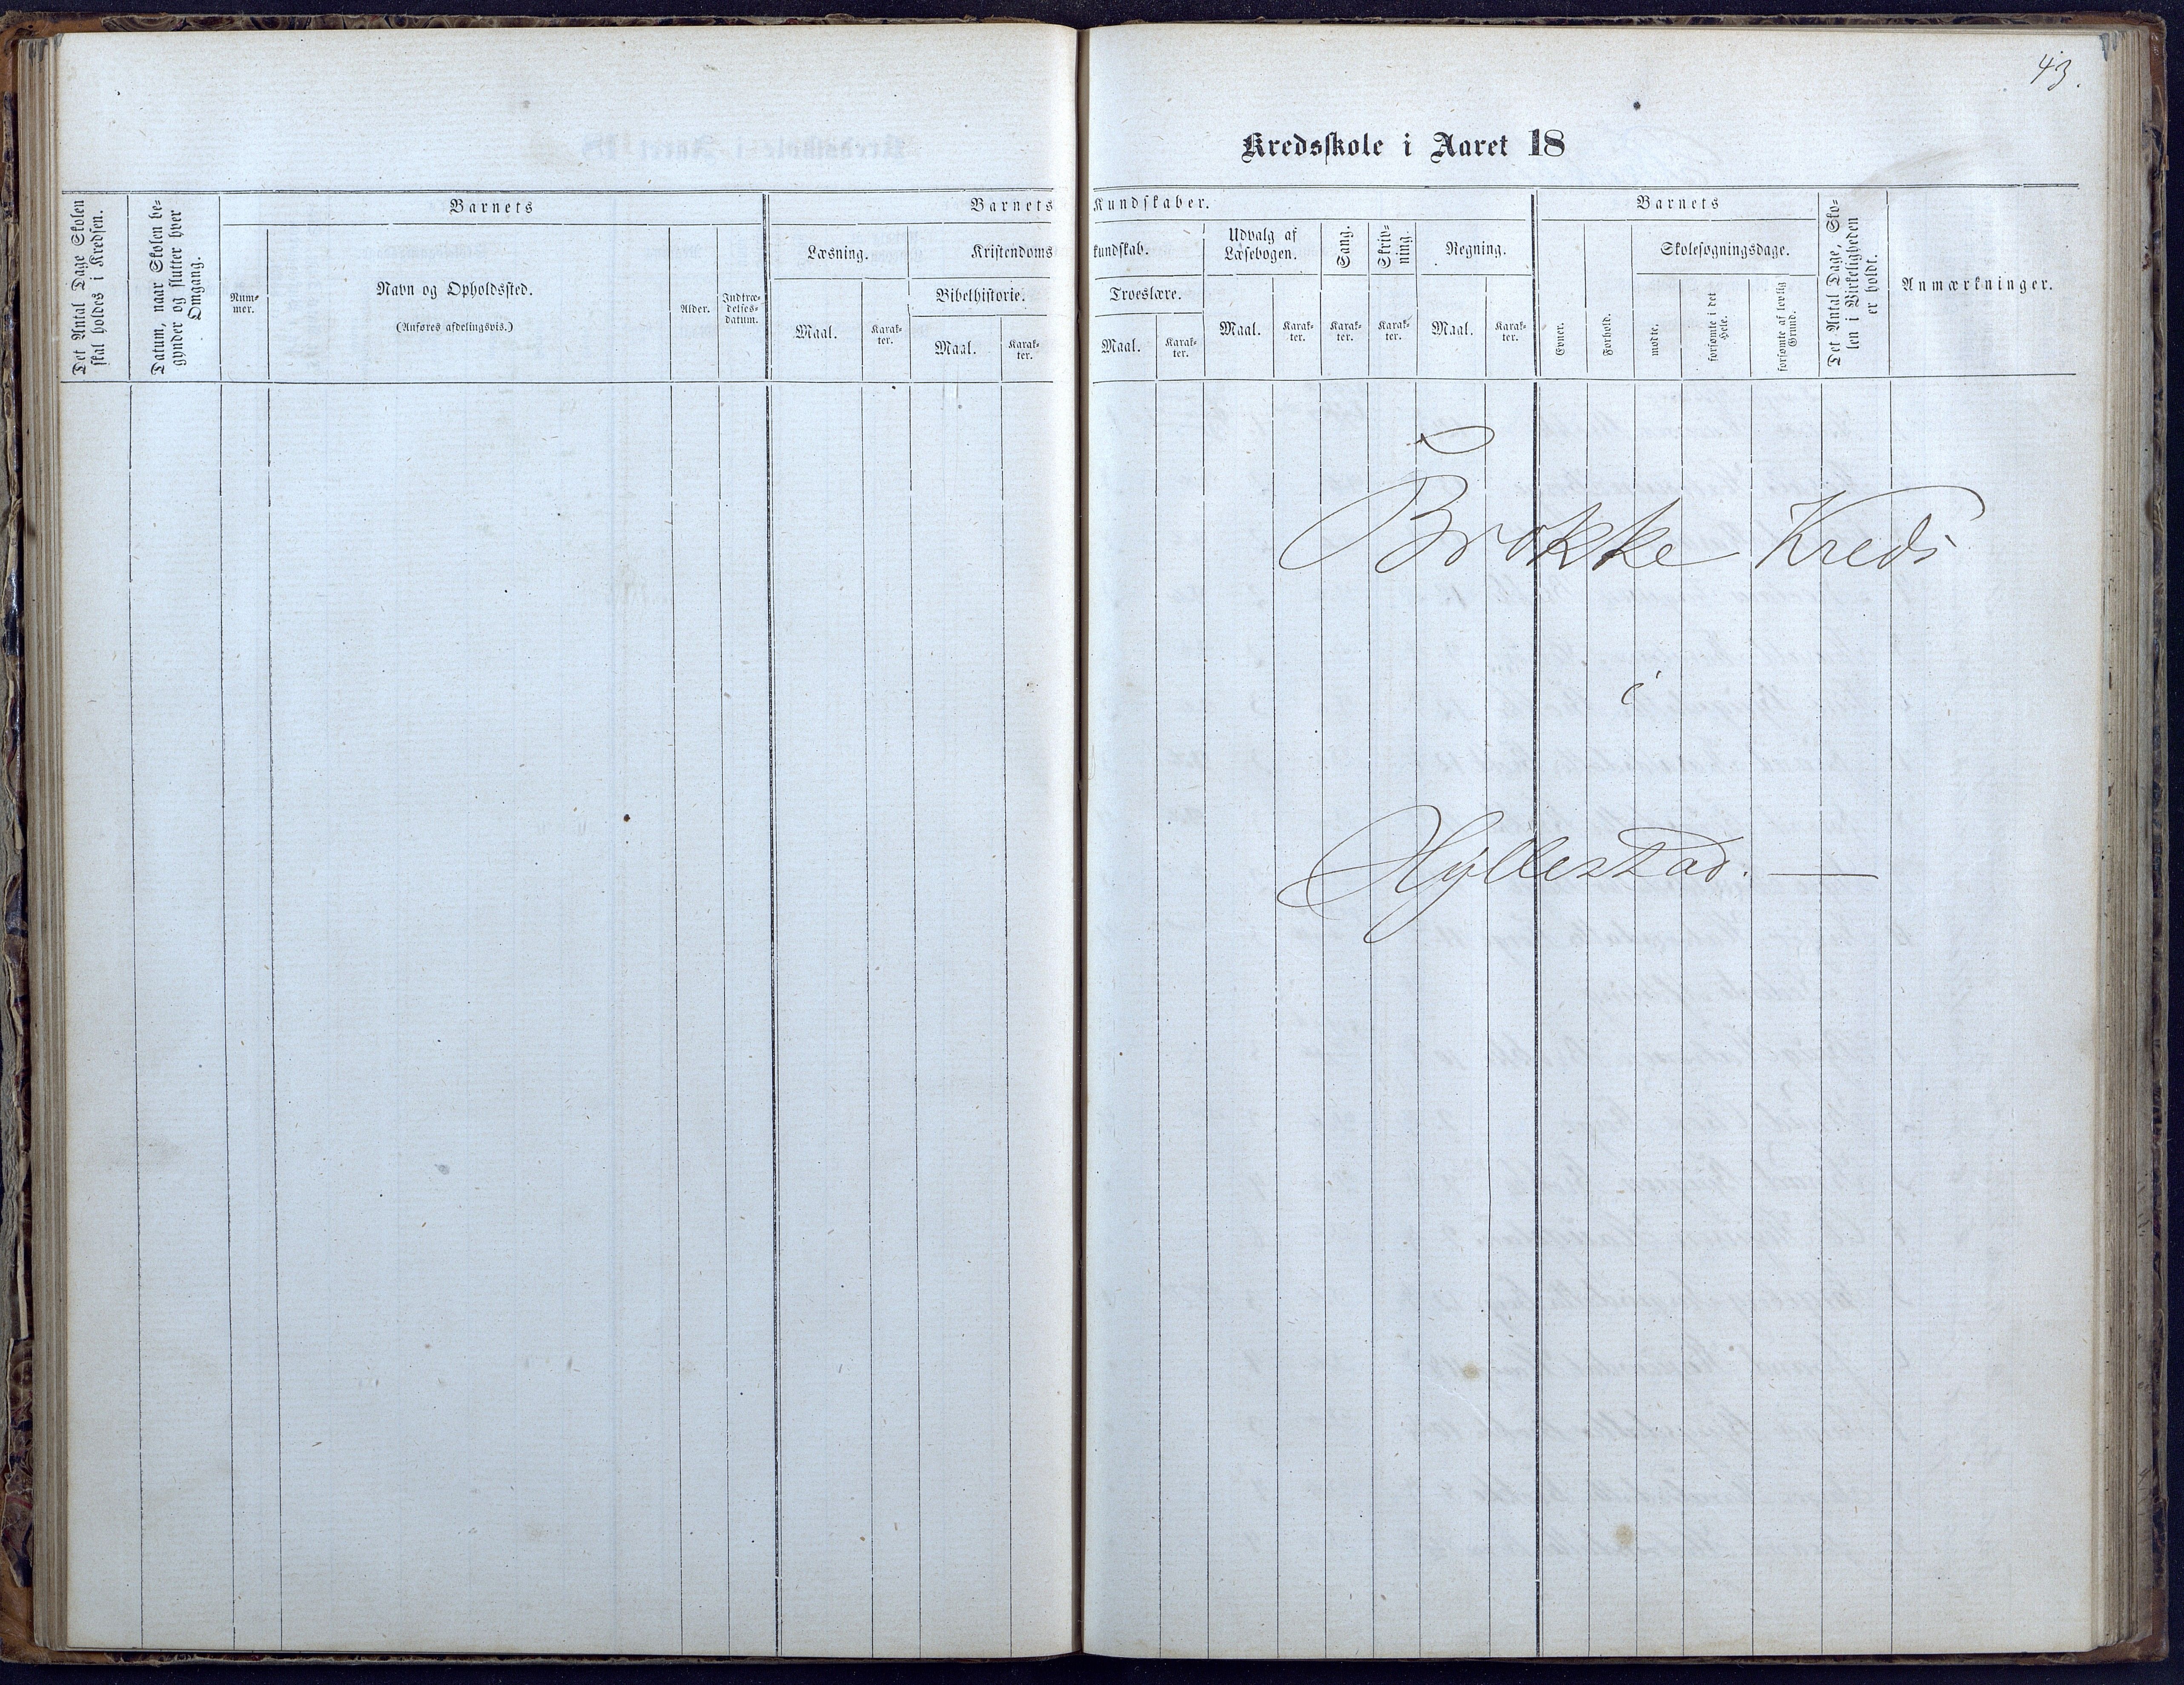 43.
Kredsskole i Aaret 18
Det Antal Dage Skolen
skal holdes i Kredsen.
Datum, naar Skolen be-
gynder og slutter hver
Omgang.
Barnets
Num-
mer.
Navn og Opholdssted.
(Anføres afdelingsvis.)
Alder.
Indtræ-
delses-
datum.
Barnets Kundskaber.
Læsning.
Maal.
Karak-
ter.
Kristendomskundskab.
Bibelhistorie.
Maal.
Karak-
ter.
Troeslære.
Maal.
Karak-
ter.
Udvalg af
Læsebogen.
Maal.
Karak-
ter.
Sang.
Karak-
ter.
Skriv-
ning.
Karak-
ter.
Regning.
Maal.
Karak-
ter.
Barnets
Evner.
Forhold.
Skolesøgningsdage.
mødte.
forsømte i det
Hele.
forsømte af lovlig
Grund.
Det Antal Dage, Sko-
len i Virkeligheden
er holdt.
Anmærkninger.
Brokke Kreds
i
Hyllestad.